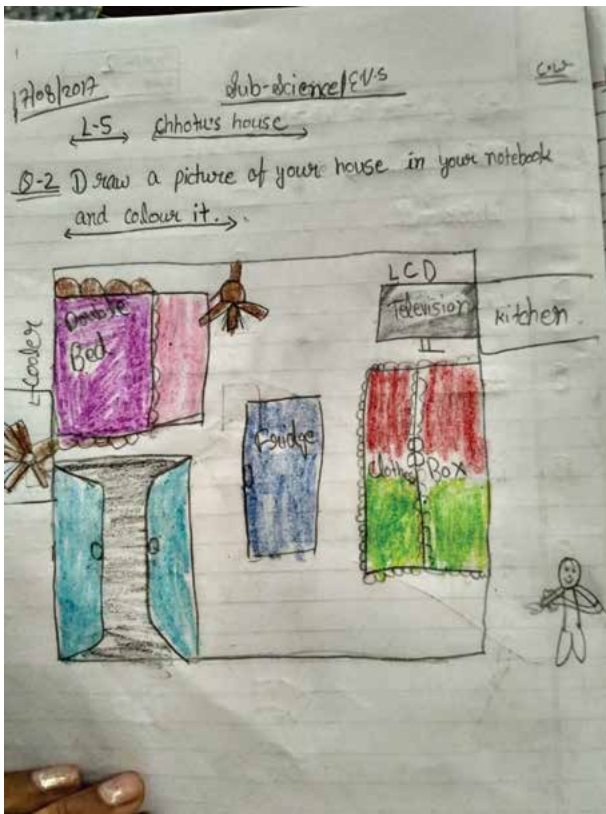 17/08/2017
Sub-Science/EVS
C.W
L-5 Chhotu's house
Q-2 Draw a picture of your house in your notebook
and colour it.
LCD
Television
Kitchen.
Double
Bed
Cooler
Fridge
Clothes Box